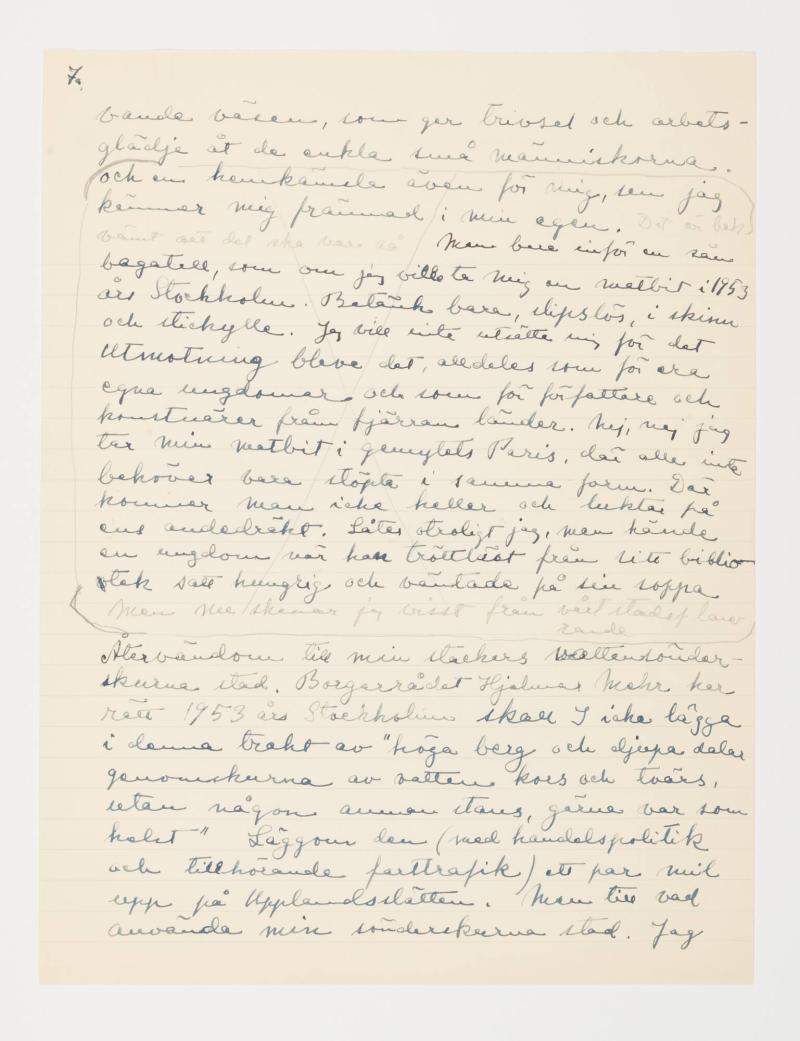 7.
vande väsen, som ger trivsel och arbets-
glädje åt de enkla små människorna.
och en hemkänsla även för mig, som jag
känner mig främmad i min egen. Det är bek
vämt att det ska vara så Men bara inför en sån
bagatell, som om jag ville ta mig en matbit i 1953
års Stockholm. Betänk bara, slipslös, i skinn
och stickylle. Jag vill inte utsätta mig för det
Utmotning bleve det, alldeles som för era
egna ungdomar och som för författare och
konstnärer från fjärran länder. Nej, nej jag
tar min matbit i gemytets Paris, där alla inte
behöver vara stöpta i samma form. Där
kommer man icke heller och luktar på
ens andedräkt. Låter otroligt jag, men hände
en ungdom när han tröttläst från sitt biblio
tek satt hungrig och väntade på sin soppa
Men nu skenar jag visst från vårt stadsplane
rande
Återvändom till min stackars vattensönder-
skurna stad. Borgarrådet Hjalmar Mehr har
rätt 1953 års Stockholm skall I icke lägga
i denna trakt av "höga berg och djupa dalar
genomskurna av vatten kors och tvärs,
utan någon annan stans, gärna var som
helst" Läggom den (med handelspolitik
och tillhörande farttrafik) ett par mil
upp på Upplandsslätten. Men till vad
använda min sönderskurna stad. Jag